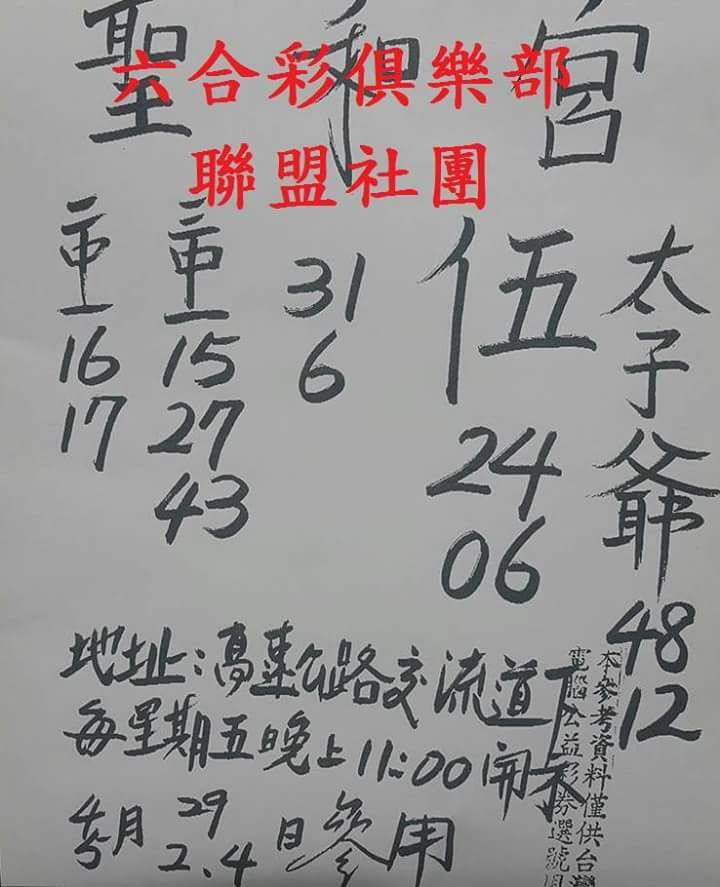 六合彩俱樂部
聯盟社團
聖 宮
太子爺
48
12
伍
24
06
31
6
三中一
15
27
43
二中一
16
17
地址:高速公路交流道下
每星期五晚上11:00開
4 29
5月 2.4日參用
本參考資料僅供台
電腦公益彩券選號